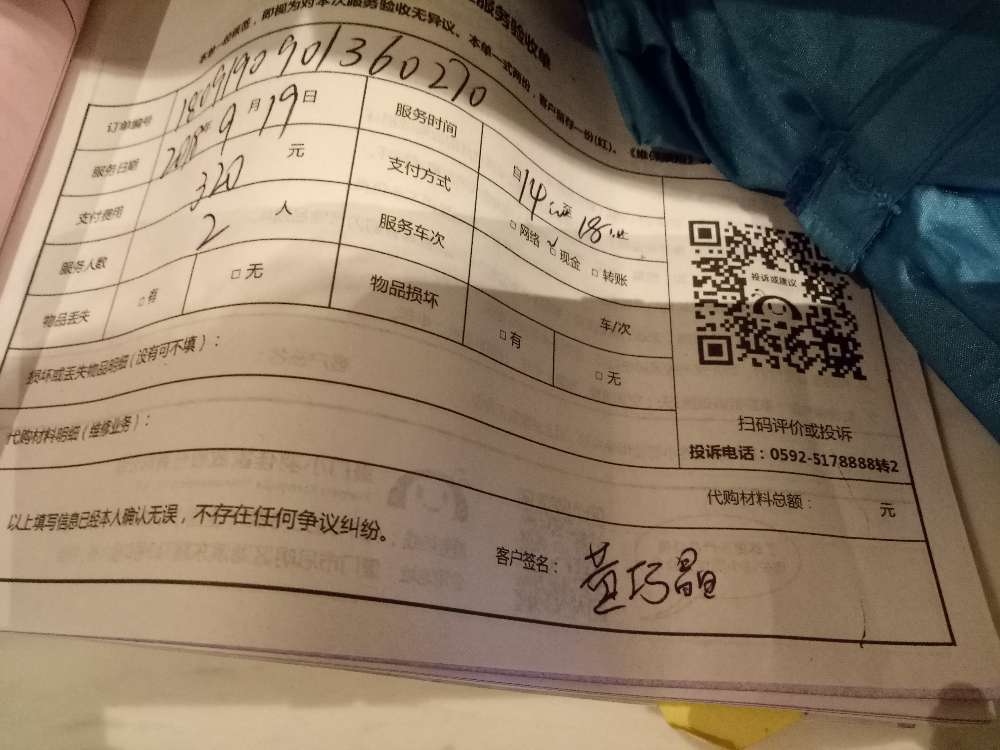 服务验收单
即视为对本次服务验收无异议。本单一式两份，客户留存一份(红)。
订单编号 1809190901360270
服务日期 2018年9月19日 服务时间 自14:00至18:00
支付费用 320 元 支付方式 □网络 ☑现金 □转账
服务人数 2 人 服务车次 车/次
物品丢失 □有 □无 物品损坏 □有 □无
投诉或建议
扫码评价或投诉
投诉电话：0592-5178888转2
损坏或丢失物品明细（没有可不填）：
代购材料明细（维修业务）：
代购材料总额： 元
以上填写信息已经本人确认无误，不存在任何争议纠纷。
客户签名：黄巧晶